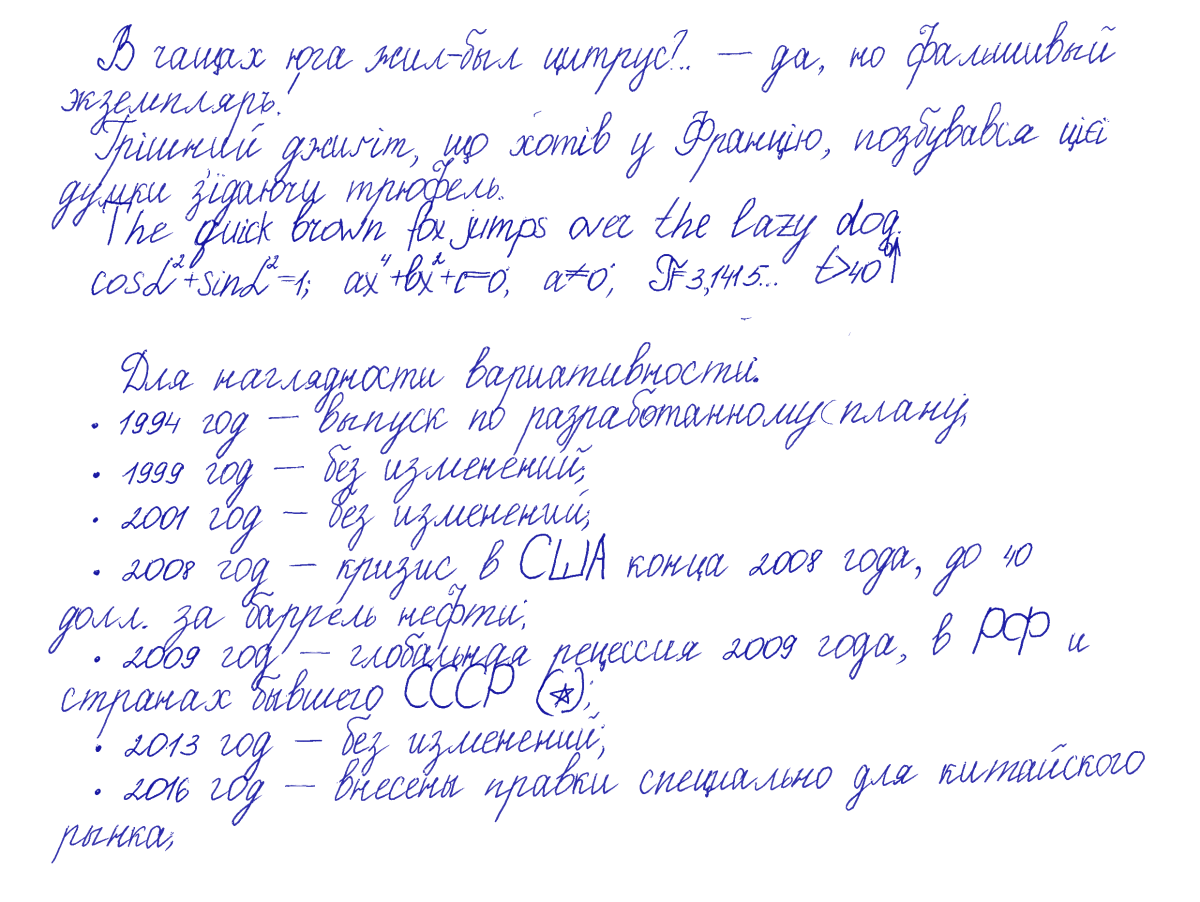 В чащах юга жил-был цитрус?.. — да, но фальшивый
экземпляръ.
Грішний джигіт, що хотів у Францію, позбувався цієї
думки з'їдаючи трюфель.
The quick brown fox jumps over the lazy dog.
cosα²+sinα²=1; ax⁴+bx²+c=0; a≠0; π=3,1415... t>40°↑
Для наглядности вариативности.
• 1994 год — выпуск по разработанному плану;
• 1999 год — без изменений;
• 2001 год — без изменений;
• 2008 год — кризис в США конца 2008 года, до 40
долл. за баррель нефти;
• 2009 год — глобальная рецессия 2009 года, в РФ и
странах бывшего СССР (☆);
• 2013 год — без изменений;
• 2016 год — внесены правки специально для китайского
рынка;